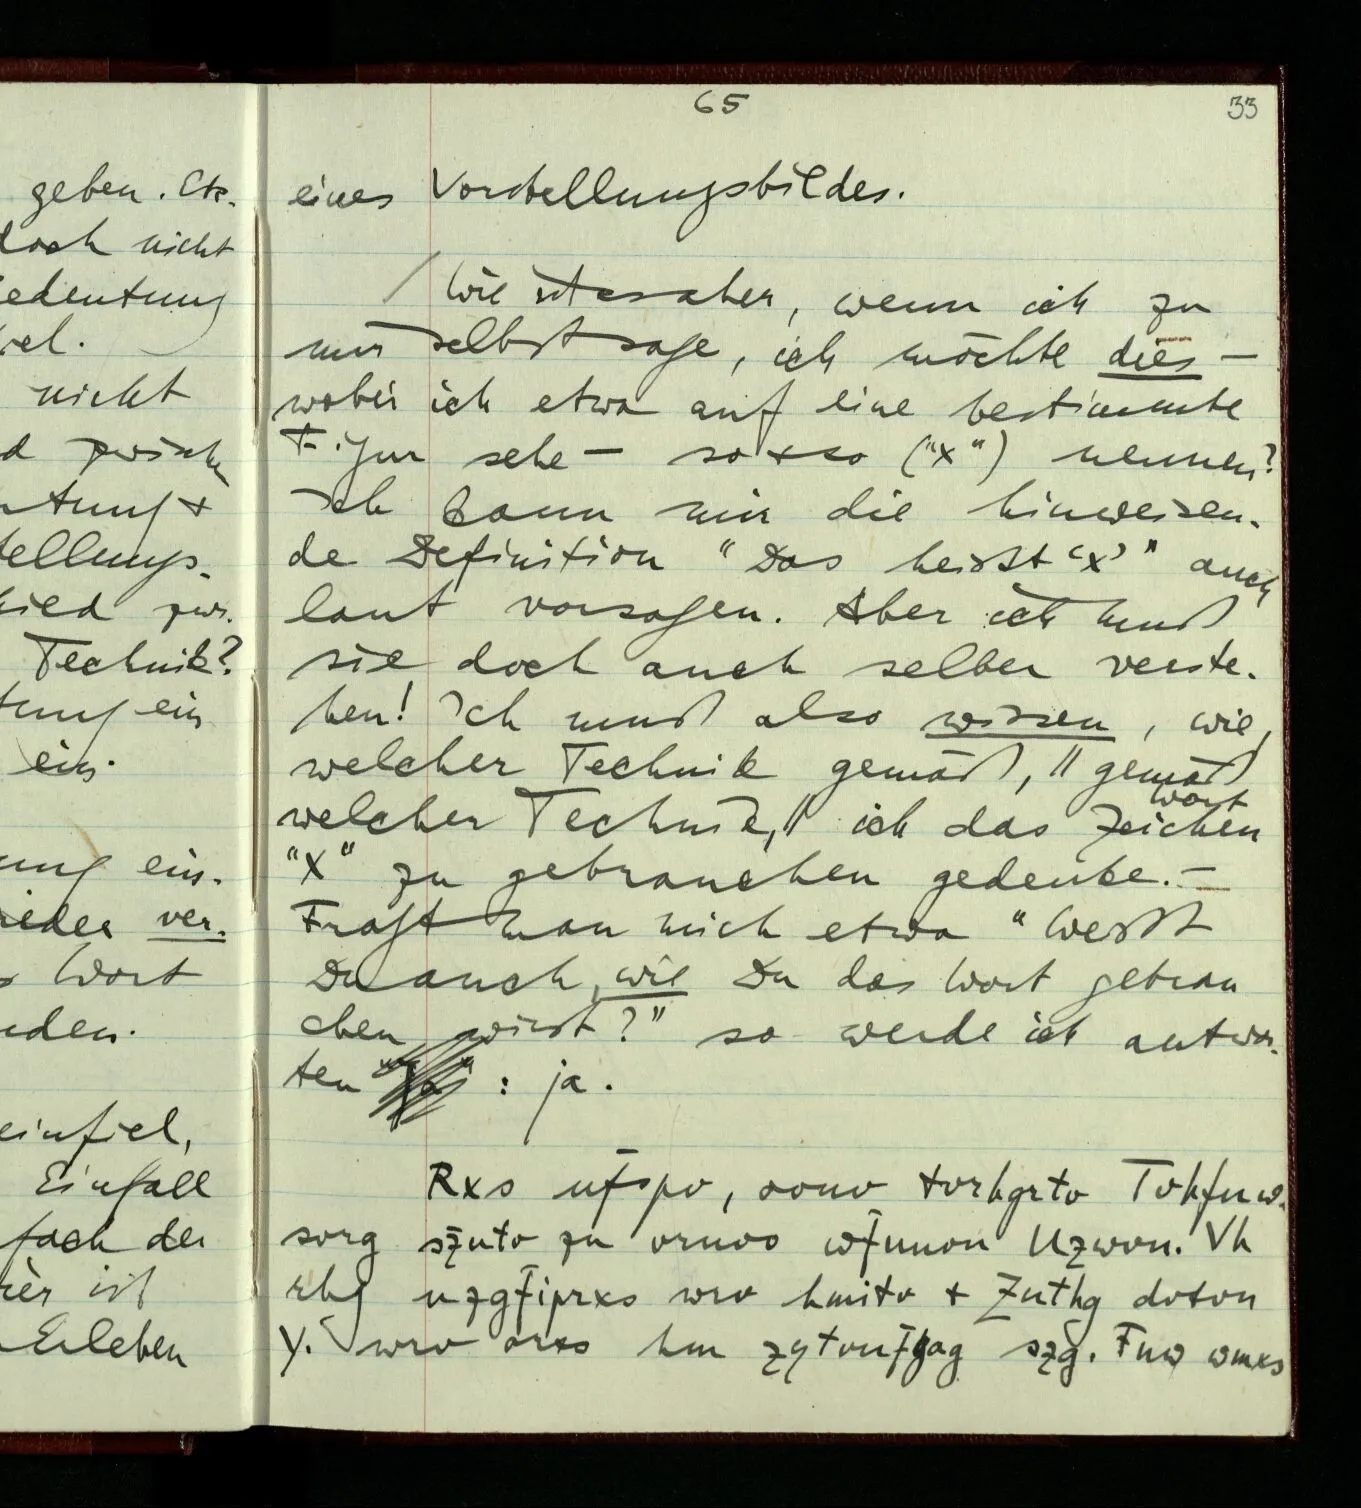 geben. Etc.
doch nicht
nicht
Technik?
ein
ein.
ein-
ver-
Wort
einfiel,
Einfall
fach der
ist
Erleben
65
33
eines Vorstellungsbildes.
/ Wie ist es aber, wenn ich zu
mir selbst sage, ich möchte dies –
wobei ich etwa auf eine bestimmte
Figur sehe – so + so ("x") nennen?
Ich kann mir die hinweisen-
de Definition "Das heißt 'x'" auch
laut vorsagen. Aber ich muß
sie doch auch selber verste-
hen! Ich muß also wissen, wie,
welcher Technik gemäß, // gemäß
welcher Technik, // ich das Zeichen
Wort
"x" zu gebrauchen gedenke. –
Fragt man mich etwa "Weißt
Du auch, wie Du das Wort gebrau
chen wirst?" so werde ich antwor-
ten "ja" : ja.
Rxs uf̄spv, ovrnv tvrhgrtv Tvhfnw-
svrg sz̄ntv zn vrnvo wf̄nnvn Uzwvn. Vh
rhg nzgf̄iprxs wrv hmitv + Znthg dvtvn
Y. wrv orxs hm zytvnf̄gag szg. Fnw wmxs